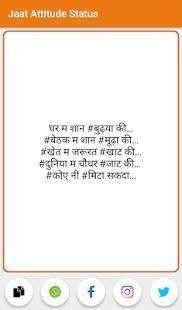 Jaat Attitude Status
घर म शान #बुढया की...
#बेठक म शान #मूढ़ा की...
#खेत म जरूरत #खाट की...
#दुनिया म चौधर #जाट की...
#कोए नी #मिटा सकदा...